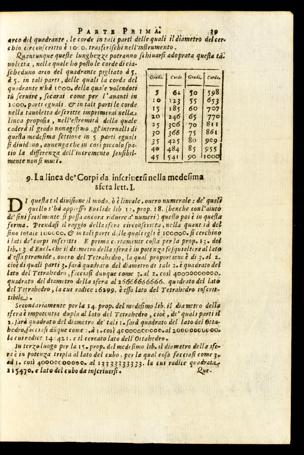 PARTE PRIMA. 39
arco del quadrante, le corde in tali parti delle quali il diametro del cer-
chio circonscritto è 10:0. trascriverò nell'instrumento.
Quantunque queste lunghezze potranno schivarsi adoprata questa ta-
voletta, nelle quale ho posto le corde di cia-
scheduno arco del quadrante pigliato di 5.
di 5. in tali parti, delle quali la corda del
quadrante è di 1000. della qual'e volendoti
tù servire, segarai come per l'avanti in
1000. parti eguali. & in tali parti le corde
nella tavoletta descritte imprimerai nella
linea propria, nell'estremità della quale
caderà il grado nonagesimo, gl'intervalli di
questa medesima settione in 5 parti eguali
si divid no, avvenga che in così piccolo spa-
tio la differenza dell'incremento sensibil-
mente non si muti.
Gradi. Corde Gradi. Corde
5 61 50 598
10 123 55 653
15 185 60 707
20 246 65 770
25 306 70 811
30 366 75 861
35 425 80 909
40 484 85 955
45 541 90 1000
9. La linea de' Corpi da inscriversi nella medesima
sfera lett. I.
DI questa tal divisione il modo, ò è lineale, overo numerale: de' quali
quello s'hà appresso Euclide lib 13. prop. 18. (benche con l'aiuto
de' sini facilmente si possa ancora ridurre a' numeri) questo poi è in questa
forma. Prendasi il raggio della sfera circonscritta, nella quantità del
sino totale 100000. & in tali parti, delle quali egli è 100000. si cerchino
i lati de' corpi inscritti E prima è certamente cosa per la prop. 13. del
lib. 13. d'Eucl. che il diametro della sfera è in potenza sesquialtero al lato
d'essa piramide, overo del Tetrahedro, la qual proportione è di 3. al 2.
cioè di quali parti 3. sarà quadrato del diametro di tali 2. il quadrato del
lato del Tetrahedro, faccisi dunque come 3. al 2. così 40000000000.
quadrato del diametro della sfera al 26666666666. quadrato del lato
del Tetrahedro, la cui radice 163299. è esso lato del Tetrahedro inscrit-
tibile.
Secondariamente per la 14 prop. del medesimo lib. il diametro della
sfera è in potenza duplo al lato del Tetrahedro, cioè, de' quali parti il
2. sarà quadrato del diametro di tali 1. sarà quadrato del lato dell'Otta-
hedro, faccisi dunque come 2. à 1. così 40000000000. al 20000000000.
la cui radice 141421. è il cercato lato dell'Ottahedro.
In terzo luogo per la 15. prop. del medesimo lib. il diametro della sfe-
ra è in potenza tripla al lato del cubo. per la qual cosa facciasi come 3.
ad 1. così 40000000000. al 13333333333. la cui radice quadrata,
115470. è lato del cubo da inscriversi. Que-